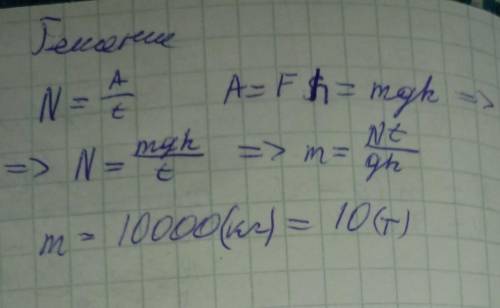 Решение
N = A/t A = Fh = mgh =>
=> N = mgh/t => m = Nt/gh
m = 10000(кг) = 10(т)